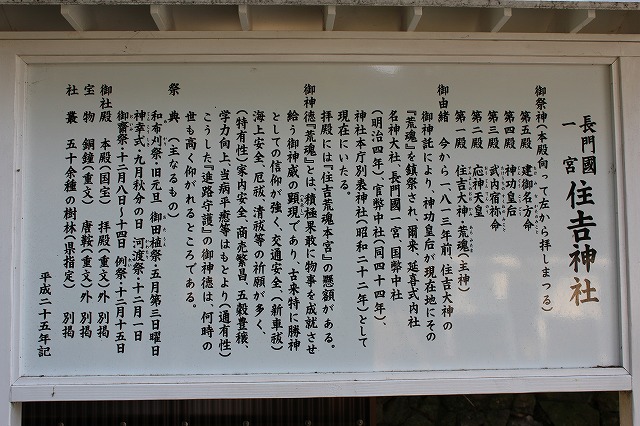 長門國一宮 住吉神社
御祭神(本殿向って左から拝しまつる)
第五殿 建御名方命
第四殿 神功皇后
第三殿 武内宿祢命
第二殿 応神天皇
第一殿 住吉大神・荒魂(主神)
御由緒 今から一、八一三年前、住吉大神の
御神託により、神功皇后が現在地にその
『荒魂』を鎮祭され、爾来、延喜式内社
名神大社、長門國一宮、国幣中社
(明治四年)、官幣中社(同四十四年)、
神社本庁別表神社(昭和二十二年)として
現在にいたる。
拝殿には『住吉荒魂本宮』の懸額がある。
御神徳『荒魂』とは、積極果敢に物事を成就させ
給う御神威の顕現であり、古来特に勝神
としての信仰が強く、交通安全、(新車祓)
海上安全、厄祓、清祓等の祈願が多く、
(特有性)家内安全、商売繁昌、五穀豊穣、
学力向上、当病平癒等はもとより(通有性)
こうした『進路守護』の御神徳は、何時の
世も高く仰がれるところである。
祭典(主なるもの)
和布刈祭・旧元旦 御田植祭・五月第三日曜日
神幸式・九月秋分の日 河渡祭・十二月一日
御斎祭・十二月八日〜十四日 例祭・十二月十五日
御社殿 本殿(国宝) 拝殿(重文)外 別掲
宝物 銅鐘(重文) 唐鞍(重文)外 別掲
社叢 五十余種の樹林(県指定) 別掲
平成二十五年記